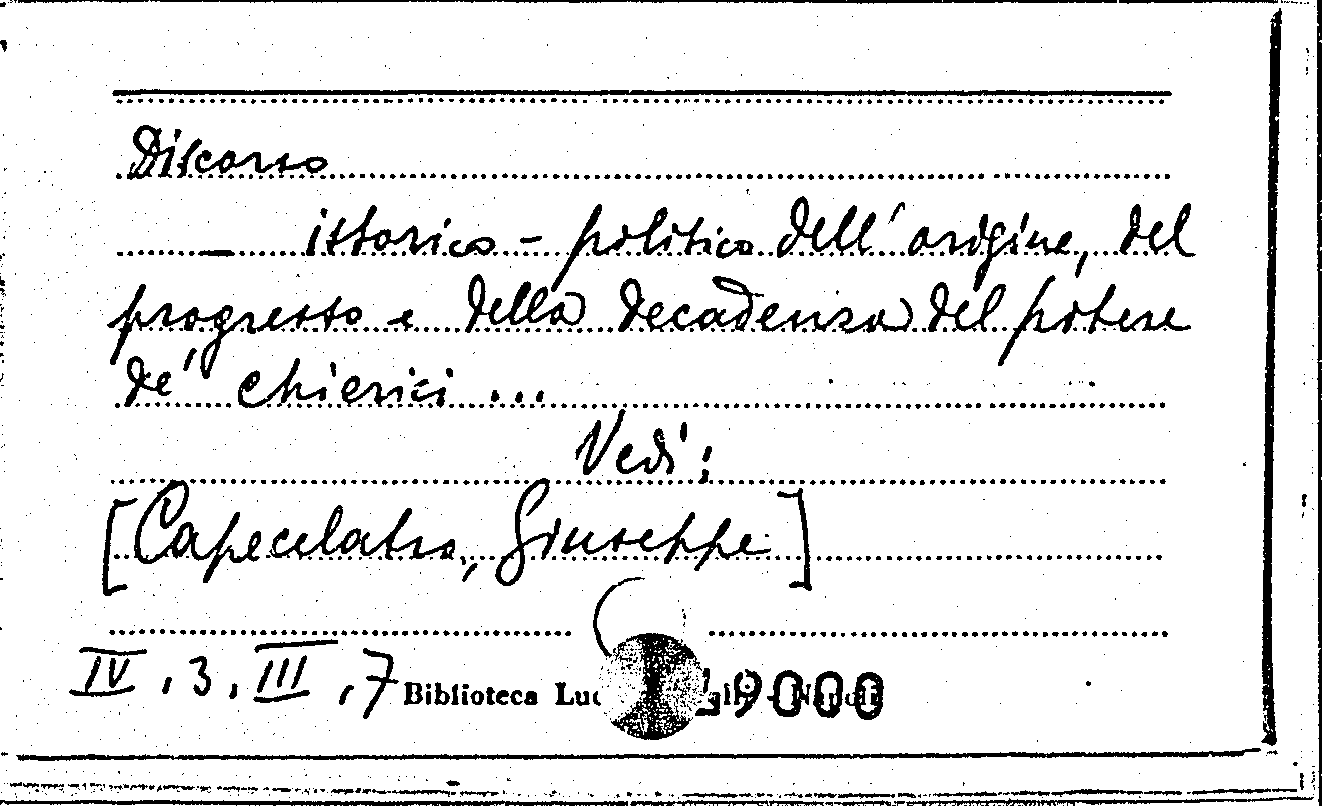 Discorso
— istorico - politico dell'origine, del
progresso e della decadenza del potere
de' chierici ...
Vedi:
[Capecelatro, Giuseppe]
IV, 3, III, 7 Biblioteca 9000